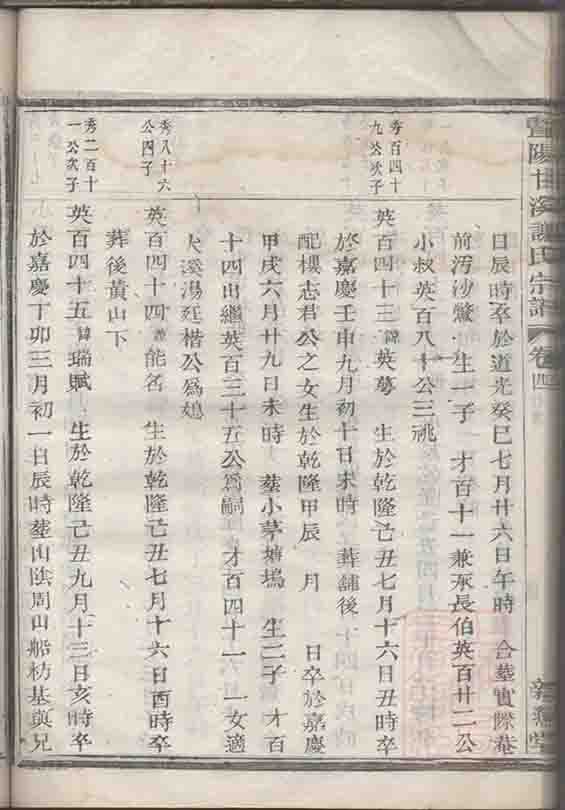 暨陽甘溪謝氏宗譜
卷四
日辰時卒於道光癸巳七月廿六日午時 合葬實際菴
前汚沙鱉 生一子 才百十一兼承長伯英百廿二公
小叔英百八十公三祧
秀百四十
九公次子
英百四十三諱英萼 生於乾隆己丑七月十六日丑時卒
於嘉慶壬申九月初十日未時 葬舗後
配樓志君公之女生於乾隆甲辰 月 日卒於嘉慶
甲戌六月廿九日未時 葬小茅塘塢 生二子 才百
十四出繼英百三十五公爲嗣 才百四十一 一女適
大溪湯廷楷公爲媳
秀八十六
公四子
英百四十四諱能名 生於乾隆己丑七月十六日酉時卒
葬後黃山下
秀二百十
一公次子
英百四十五諱瑞賦 生於乾隆己丑九月十三日亥時卒
於嘉慶丁卯三月初一日辰時葬山陰周山船舫基與兄